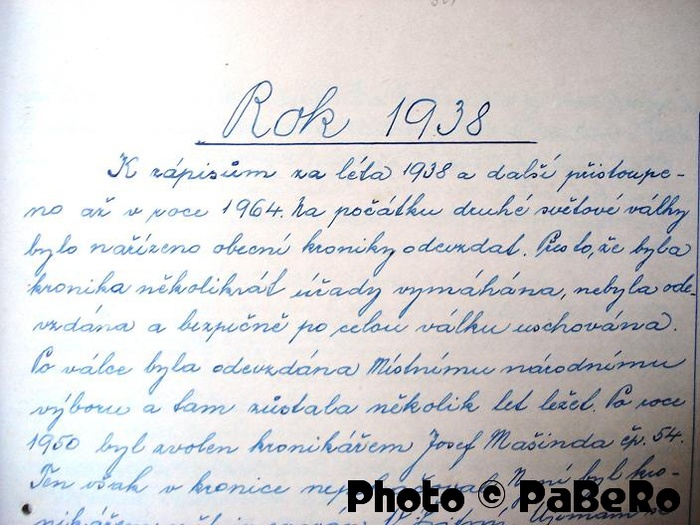 Rok 1938
K zápisům za léta 1938 a další přistoupe-
no až v roce 1964. Na počátku druhé světové války
bylo nařízeno obecní kroniky odevzdat. Přes to, že byla
kronika několikrát úřady vymáhána, nebyla ode-
vzdána a bezpečně po celou válku uschována.
Po válce byla odevzdána Místnímu národnímu
výboru a tam zůstala několik let ležet. Po roce
1950 byl zvolen kronikářem Josef Mašinda čp. 54.
Ten však v kronice nepokračoval. Nyní byl kro-
Photo © PaBeRo